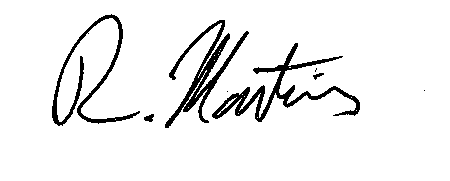 R. Martins